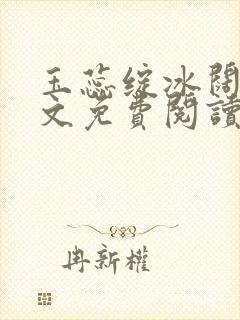 玉蕊绽冰阔
文免費閱讀
冉新權